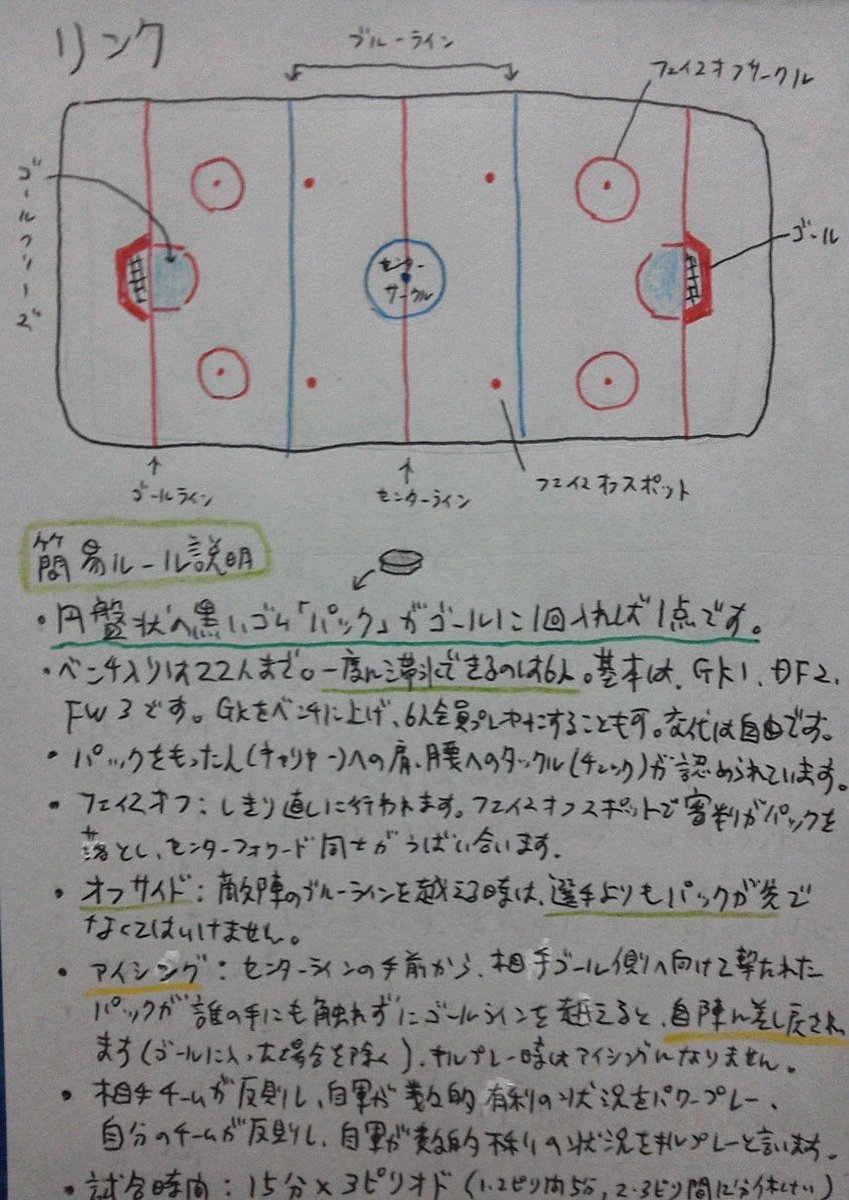 リンク
ブルーライン
フェイスオフサークル
ゴールクリーズ
ゴール
センター
サークル
ゴールライン
センターライン
フェイスオフスポット
簡易ルール説明
・円盤状の黒いゴム「パック」がゴールに1回入れば1点です。
・ベンチ入りは22人まで。一度に滞氷できるのは6人。基本は、GK1、DF2、
FW3です。GKをベンチに上げ、6人全員プレーヤーにすることも可。交代は自由です。
・パックをもった人(キャリヤー)への肩、腰へのタックル(チェック)が認められています。
・フェイスオフ：しきり直しに行われます。フェイスオフスポットで審判がパックを
落とし、センターフォワード同士がうばい合います。
・オフサイド：敵陣のブルーラインを越える時は、選手よりもパックが先で
なくてはいけません。
・アイシング：センターラインの手前から、相手ゴール側へ向けて撃たれた
パックが誰の手にも触れずにゴールラインを越えると、自陣に差し戻され
ます(ゴールに入った場合を除く)。キルプレー時はアイシングになりません。
・相手チームが反則し、自軍が数的有利の状況をパワープレー、
自分のチームが反則し、自軍が数的不利の状況をキルプレーと言います。
・試合時間：15分×3ピリオド(1・2ピリ間5分、2・3ピリ間